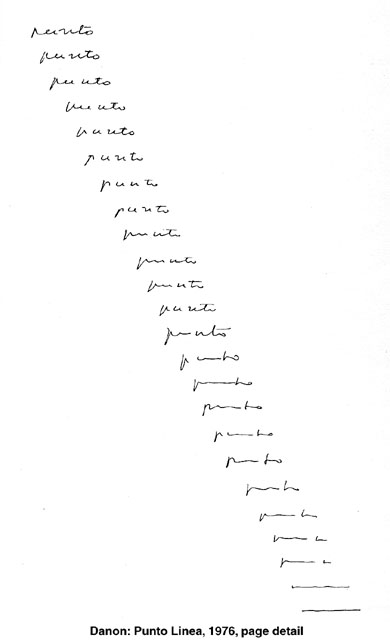 punto
punto
punto
punto
punto
punto
punto
punto
punto
punto
punto
punto
punto
punto
punto
punto
punto
punto
punto
Danon: Punto Linea, 1976, page detail